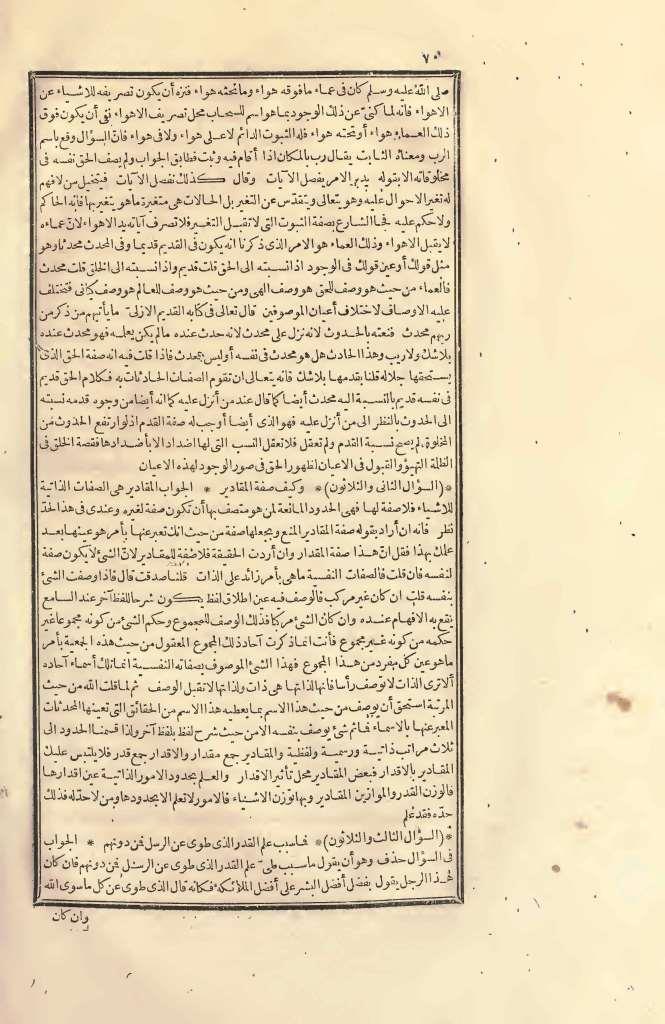 ٧٠
صلى الله عليه وسلم كان فى عماء مافوقه هواء وماتحته هواء فنزه أن يكون تصريفه للاشياء عن
الاهواء فانه لما كنى عن ذلك الوجود بما هو اسم للسحاب محل تصريف الاهواء نفى أن يكون فوق
ذلك العماء هواء أو تحته هواء فله الثبوت الدائم لا على هواء ولا فى هواء فان السؤال وقع باسم
الرب ومعناه الثابت يقال رب بالمكان اذا أقام فيه وثبت فطابق الجواب ولم يصف الحق نفسه فى
مخلوقاته الا بقوله يدبر الامر يفصل الآيات وقال كذلك نفصل الآيات فيتخيل من لا فهم
له تغير الاحوال عليه وهو يتعالى ويتقدس عن التغير بل الحالات هى متغيرة ما هو يتغير بها فانه الحاكم
ولا حكم عليه فجاء الشارع بصفة الثبوت التى لا تقبل التغيير فلا تصرف آياته يد الاهواء لان عماءه
لا يقبل الاهواء وذلك العماء هو الامر الذى ذكرنا انه يكون فى القديم قديما وفى المحدث محدثا وهو
مثل قولك أو عين قولك فى الوجود اذ انسبته الى الحق قلت قديم واذا نسبته الى الخلق قلت محدث
فالعماء من حيث هو وصف للحق هو وصف الهى ومن حيث هو وصف للعالم هو وصف كيانى فتختلف
عليه الاوصاف لاختلاف أعيان الموصوفين قال تعالى فى كتابه القديم الازلى ما يأتيهم من ذكر من
ربهم محدث فنعته بالحدوث لانه نزل على محدث لانه حدث عنده مالم يكن يعلمه فهو محدث عنده
بلا شك ولا ريب وهذا الحادث هل هو محدث فى نفسه أو ليس بمحدث فاذا قلت فيه انه صفة الحق الذى
يستحقها جلاله قلنا بقدمها بلا شك فانه يتعالى ان تقوم الصفات الحادثات به فكلام الحق قديم
فى نفسه قديم بالنسبة اليه محدث أيضا كما قال عند من أنزل عليه كما انه أيضا من وجوه قدمه نسبته
الى الحدوث بالنظر الى من أنزل عليه فهو الذى أيضا أوجب له صفة القدم اذ لو ارتفع الحدوث من
المخلوق لم يصح نسبة القدم ولم تعقل فلا تعقل النسب التى لها اضداد الا بأضدادها فقصة الخلق فى
الظلة التهيؤ والقبول فى الاعيان لظهور الحق فى صور الوجود لهذه الاعيان
*(السؤال الثانى والثلاثون)* وكيف صفة المقادير * الجواب المقادير هى الصفات الذاتية
للاشياء فلا صفة لها فهى الحدود المانعة لمن هو متصف بها أن تكون صفة لغيره وعندى فى هذا الحد
نظر فانه ان أراد بقوله صفة المقادير المنع ويجعلها صفة من حيث انك تعبر عنها بأمر هو عينها بعد
علمك بهذا فقل ان هذا صفة المقدار وان أردت الحقيقة فلا صفة للمقادير لان الشئ لا يكون صفة
لنفسه فان قلت فالصفات النفسية ما هى بأمر زائد على الذات قلنا صدقت قال فاذا وصفت الشئ
بنفسه قلت ان كان غير مركب فالوصف فيه عين اطلاق لفظ يكون شرحا للفظ آخر عند السامع
يقع به الافهام عنده وان كان الشئ مركبا فذلك الوصف للمجموع وحكم الشئ من كونه مجموعا غير
حكمه من كونه غير مجموع فأنت انما ذكرت آحاد ذلك المجموع المعقول من حيث هذه الجمعية بأمر
ما هو عين كل مفرد من هذا المجموع فهذا الشئ الموصوف بصفاته النفسية انما تلك أسماء آحاده
ألا ترى الذات لا توصف رأسا فانها لذاتها هى ذات ولذاتها لا تقبل الوصف ثم لما قلت الله من حيث
المرتبة استحق أن يوصف من حيث هذا الاسم بما يعطيه هذا الاسم من الحقائق التى تعينها المحدثات
المعبر عنها بالاسماء فما ثم شئ يوصف بنفسه الا من حيث شرح لفظ بلفظ آخر ولذا قسمنا الحدود الى
ثلاث مراتب ذاتية ورسمية ولفظية والمقادير جمع مقدار والاقدار جمع قدر فلا يلتبس عليك
المقادير بالاقدار فبعض المقادير محل تأثير الاقدار والعلم بحدود الامور الذاتية عين اقدارها
فالوزن القدر والموازين المقادير وبها توزن الاشياء فالامور لا تعلم الا بحدودها ومن لا حد له فذلك
حده فقد علم
*(السؤال الثالث والثلاثون)* ما سبب علم القدر الذى طوى عن الرسل فمن دونهم * الجواب
فى السؤال حذف وهو أن يقول ما سبب طى علم القدر الذى طوى عن الرسل فمن دونهم فان كان
هذا الرجل يقول بفضل أفضل البشر على أفضل الملائكة فكانه قال الذى طوى عن كل ما سوى الله
وان كان